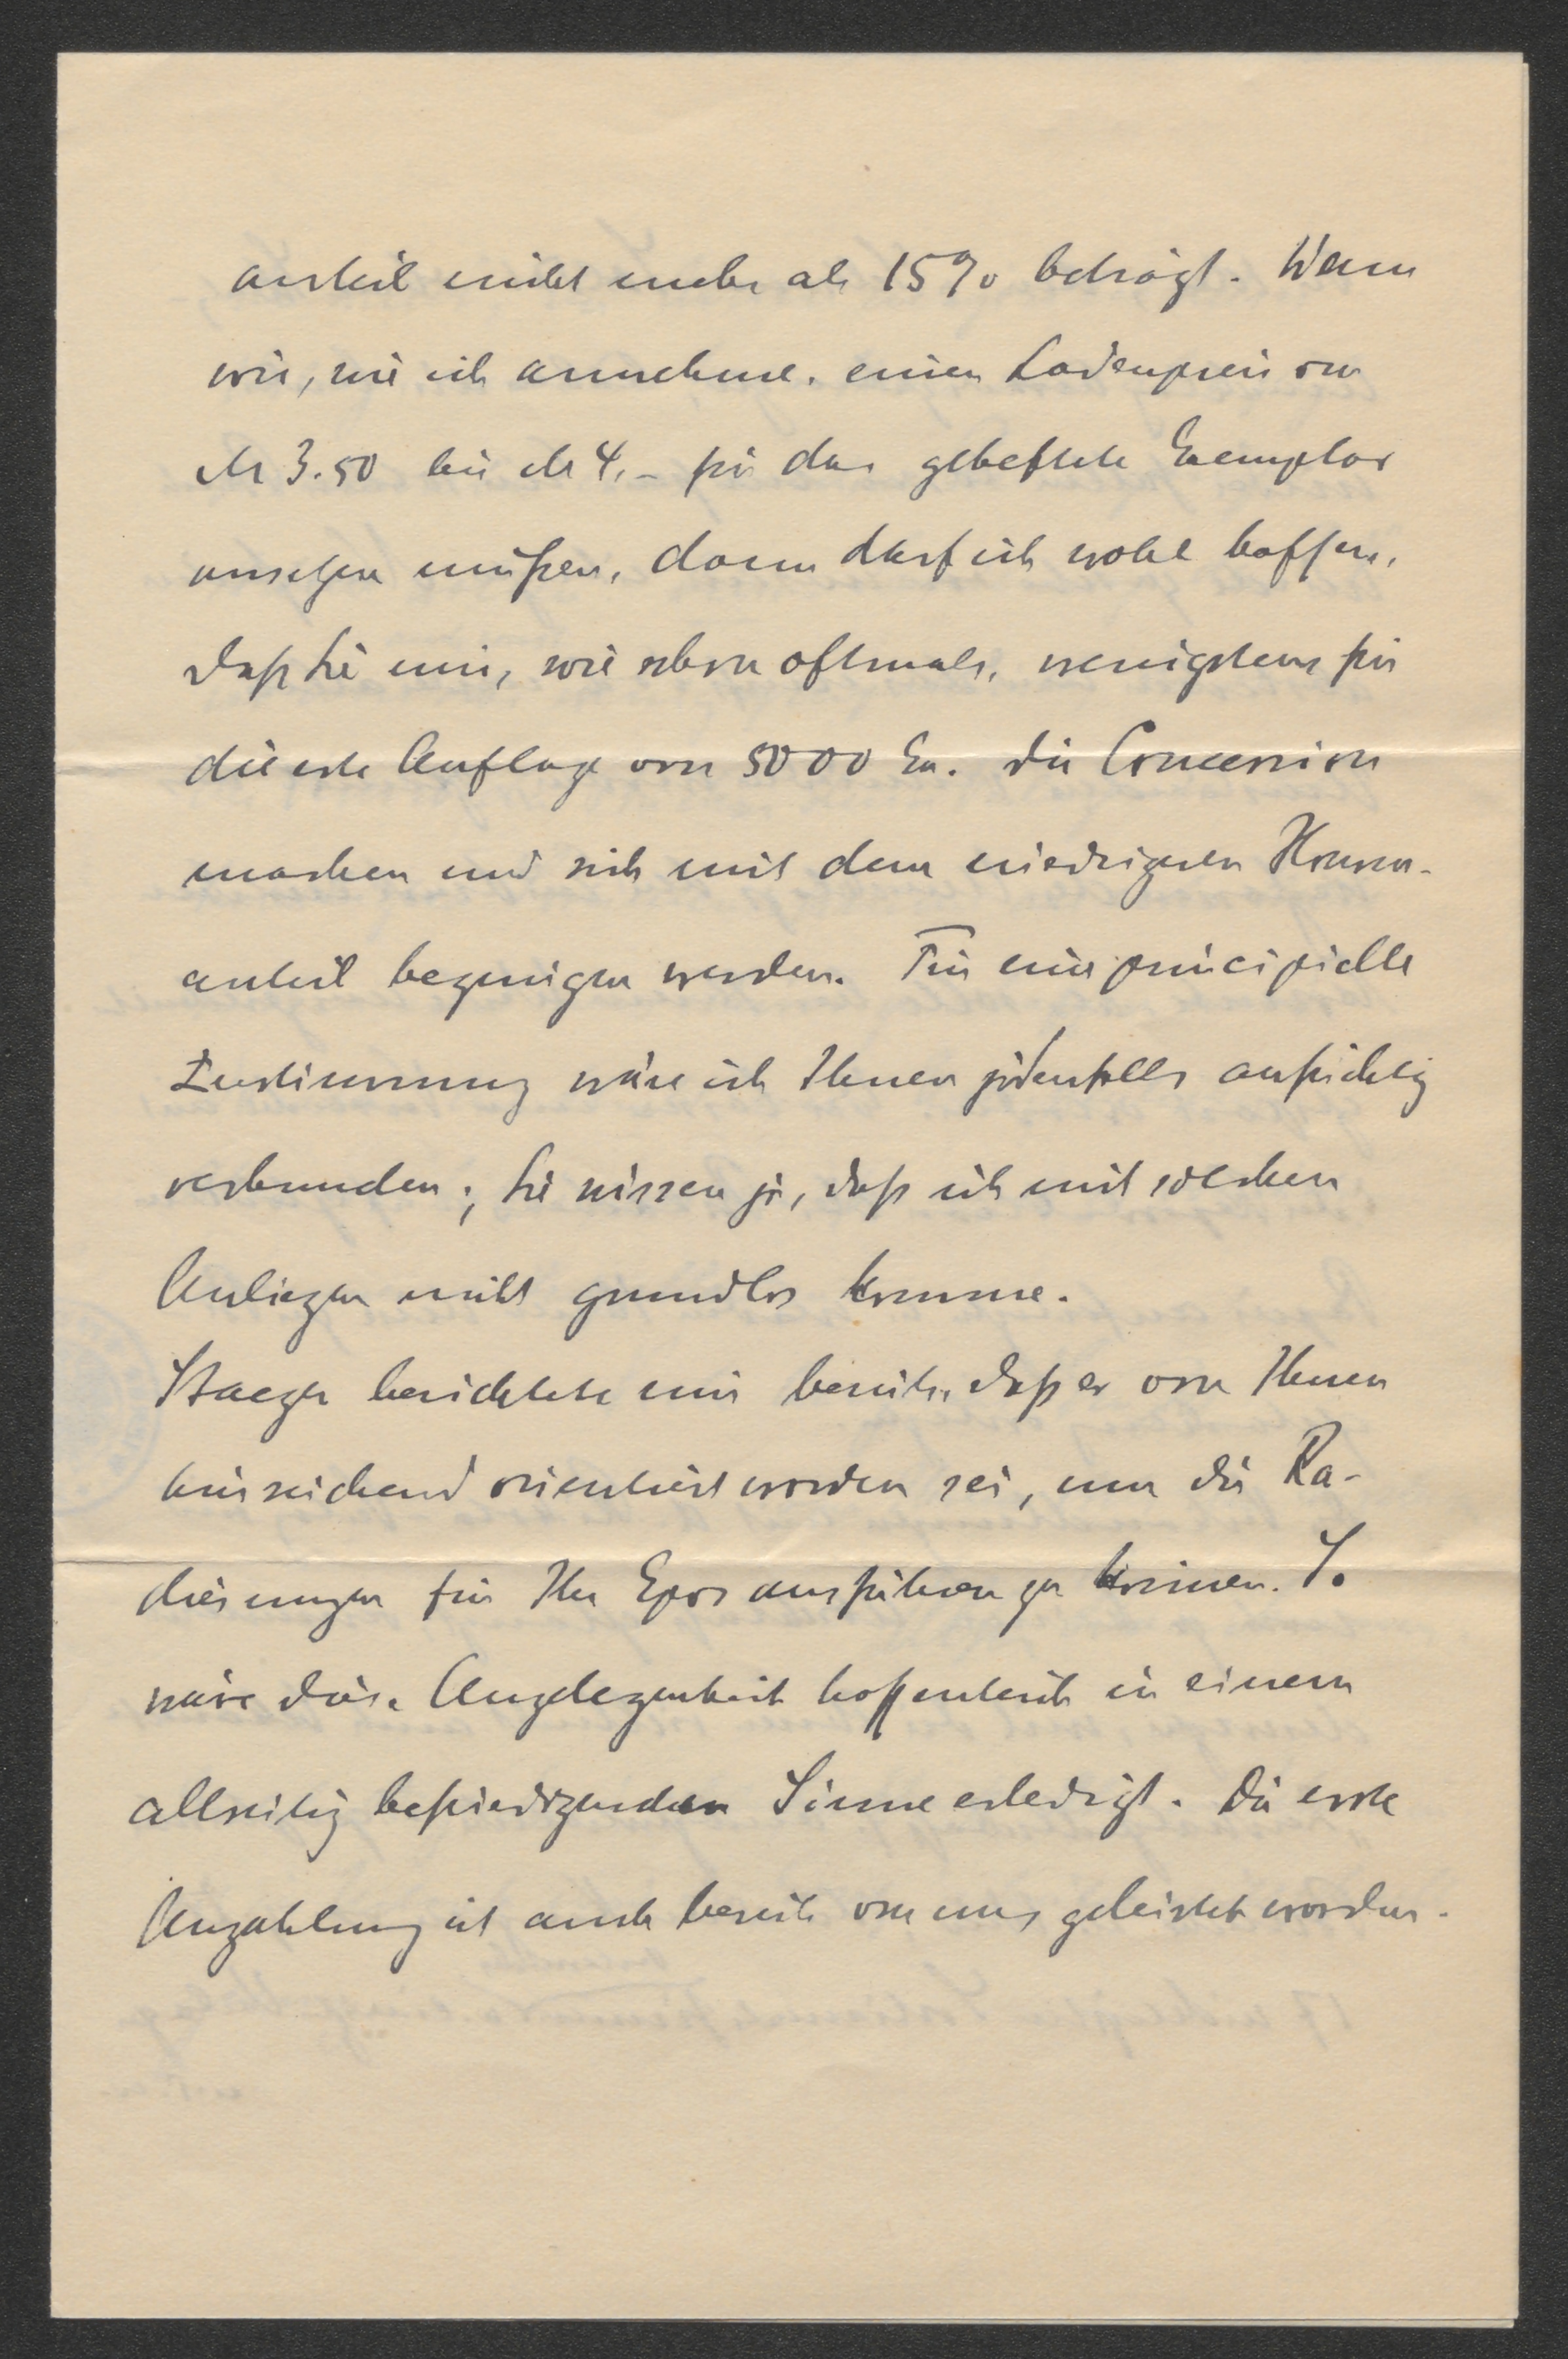 anteil nicht mehr als 15% beträgt. Wenn
wir, wie ich annehme, einen Ladenpreis von
M 3.50 bis M 4.- für das geheftete Exemplar
ansetzen müßen, dann darf ich wohl hoffen,
daß Sie mir, wie schon oftmals, wenigstens für
die erste Auflage von 5000 Ex. die Concession
machen und sich mit dem niedrigeren Honorar-
anteil begnügen werden. Für eine principielle
Zustimmung wäre ich Ihnen jedenfalls aufrichtig
verbunden; Sie wissen ja, daß ich mit solchen
Anliegen nicht grundlos komme.
Staeger berichtete mir bereits, daß er von Ihnen
hinreichend orientiert worden sei, um die Ra-
dierungen für Ihr Epos ausführen zu können. So
wäre diese Angelegenheit hoffentlich in einem
allseitig befriedigenden Sinne erledigt. Die erste
Anzahlung ist auch bereits von uns geleistet worden.